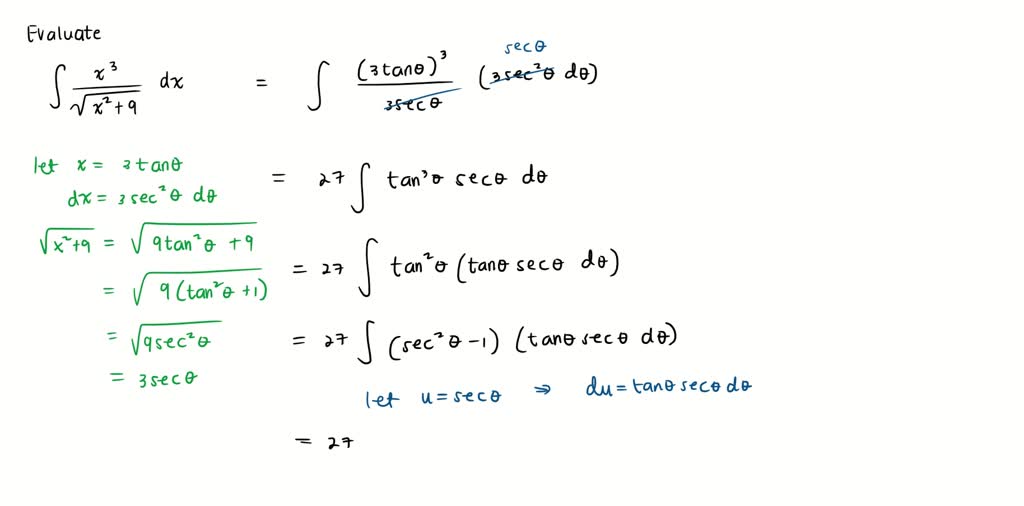 Evaluate
∫ x³/√(x²+9) dx = ∫ (3tanθ)³/3secθ (3sec²θ dθ) secθ
let x = 3tanθ
dx = 3sec²θ dθ
√(x²+9) = √(9tan²θ + 9)
= √(9(tan²θ +1))
= √(9sec²θ)
= 3secθ
= 27 ∫ tan³θ secθ dθ
= 27 ∫ tan²θ (tanθ secθ dθ)
= 27 ∫ (sec²θ -1) (tanθ secθ dθ)
let u = secθ ⇒ du = tanθ secθ dθ
= 27